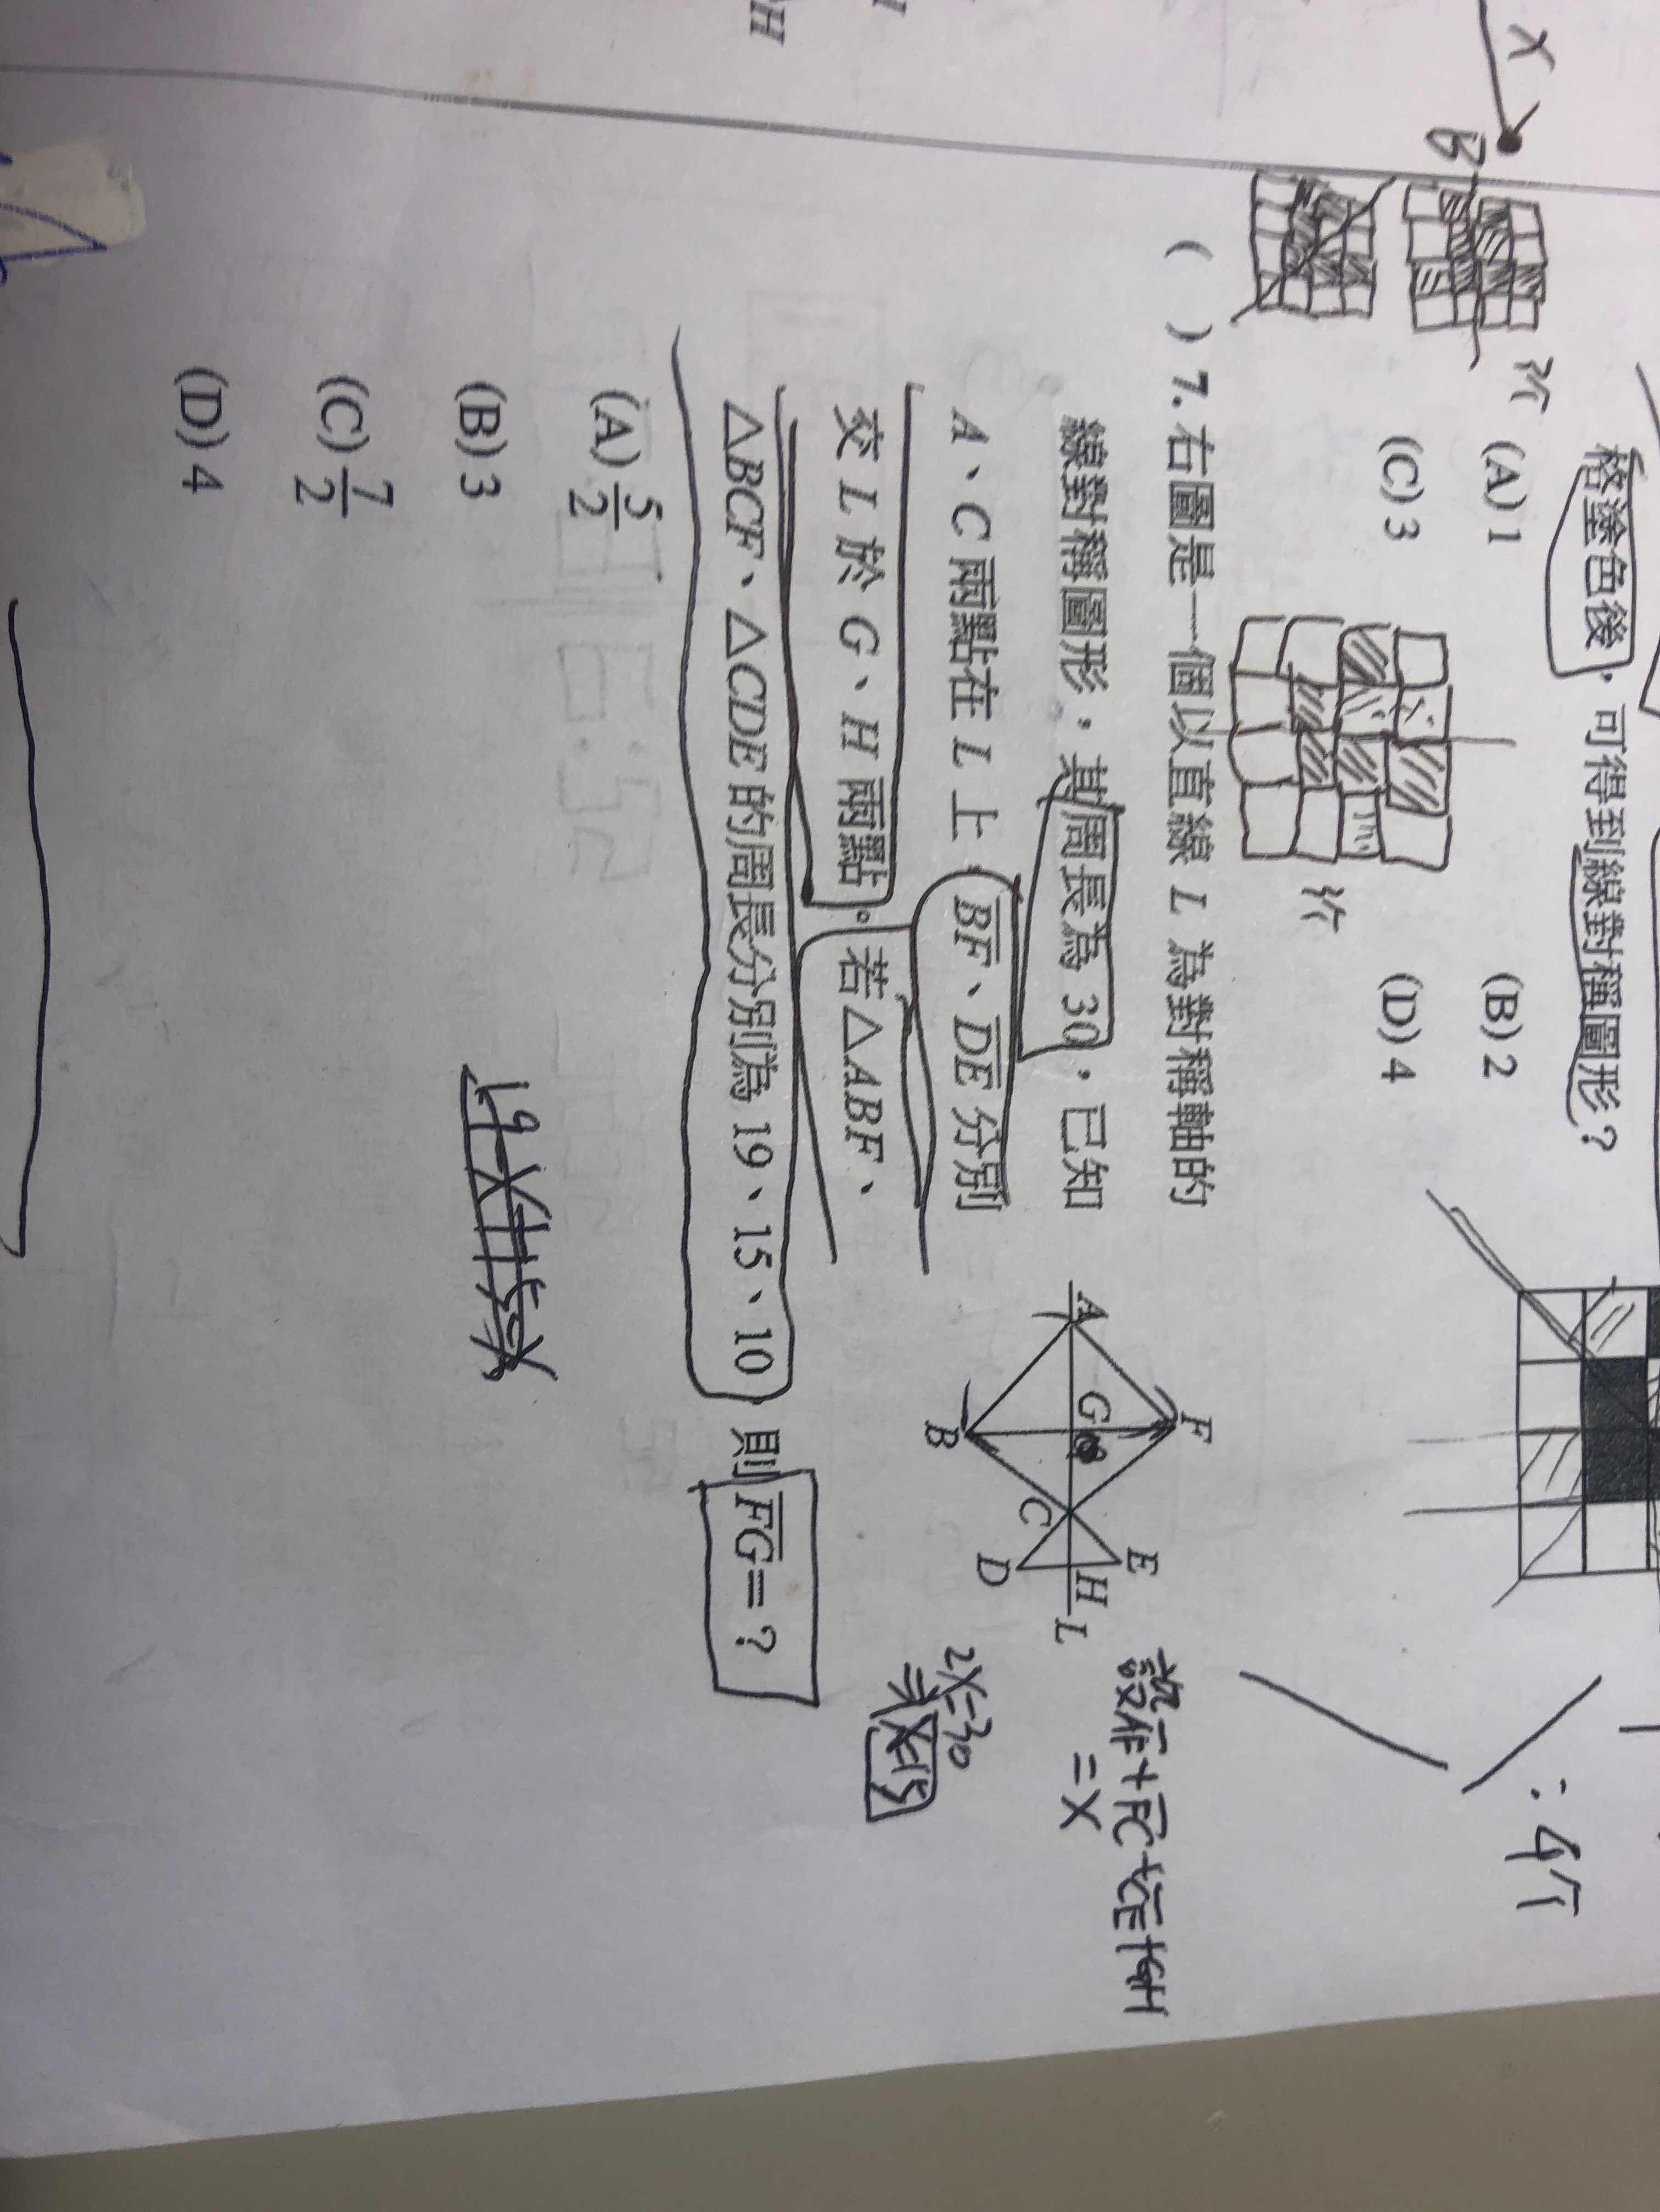 格塗色後，可得到線對稱圖形？
(A) 1
(B) 2
(C) 3
(D) 4
( ) 7. 右圖是一個以直線 L 為對稱軸的
線對稱圖形，其周長為 30，已知
A、C 兩點在 L 上，BF、DE 分別
交 L 於 G、H 兩點。若△ABF、
△BCF、△CDE 的周長分別為 19、15、10，則 FG=？
(A) 5/2
(B) 3
(C) 7/2
(D) 4
A
F
G
B
C
E
D
H
L
設AF+FC+CE+GH
=X
2X=30
X=15
X
B
H